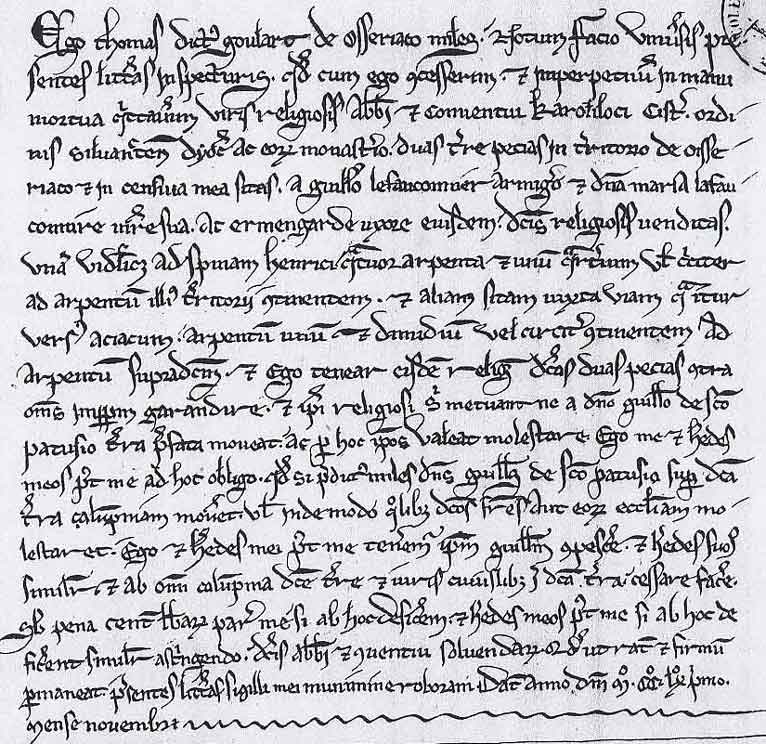 Ego thomas dictus goulart de Osseriaco miles. Notum facio universis pre-
sentes litteras inspecturis. quod cum ego concesserim. et imperpetuum in manu
mortua quittaverim viris religiosis Abbati et Conventui Karoliloci Cister. ordi-
nis silvanectensis dyoc. Ac eorum monasterio. duas terre pecias in territorio de osse-
riaco et in censiva mea sitas. a guillermo lefauconnier armigero et domina maria lafau-
conniere matre sua. ac ermengarde uxore eiusdem. dictis religiosis venditas.
unam videlicet ad spinam henrici. quatuor arpenta et unum quarterium vel circiter
ad arpentum illius territorii continentem. et aliam sitam iuxta viam qua itur
versus aciacum. arpentum unum et dimidium vel circiter continentem Ad
arpentum supradictum. et Ego tenear eisdem relig. dictas duas pecias contra
omnes imperpetuum garandire. et ipsi religiosi super metuant ne a domino guillermo de sancto
patusio terra prefata moveat. ac per hoc ipsos valeat molestare. Ego me et heredes
meos post me ad hoc obligo. quod si predictus miles dominus guillermus de sancto patusio super dicta
terra calumpniam moveret. vel inde modo quolibet dictos fratres aut eorum ecclesiam mo-
lestaret. Ego et heredes mei post me tenemur ipsum guillermum compescere. et heredes suos
similiter. et ab omni calupmia dicte terre et iuris cuiuslibet in dicta terra. cessare facere.
sub pena centum librarum par. me si ab hoc deficerem. et heredes meos post me si ab hoc de-
ficerent similiter astringendo. dictis abbati et conventui solvendarum. Quod ut ratum et firmum
permaneat presentes litteras sigilli mei munimine roboravi. Datum anno domini mo. cco. lxo primo.
mense novembri